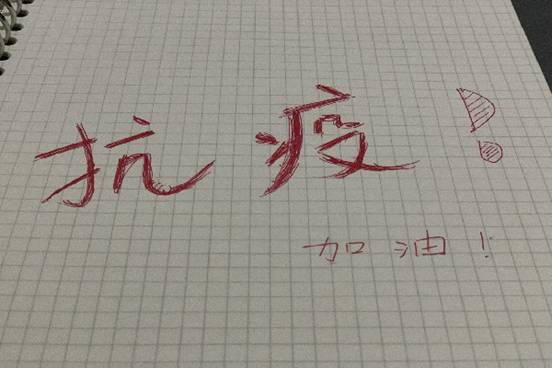 抗疫！
加油！